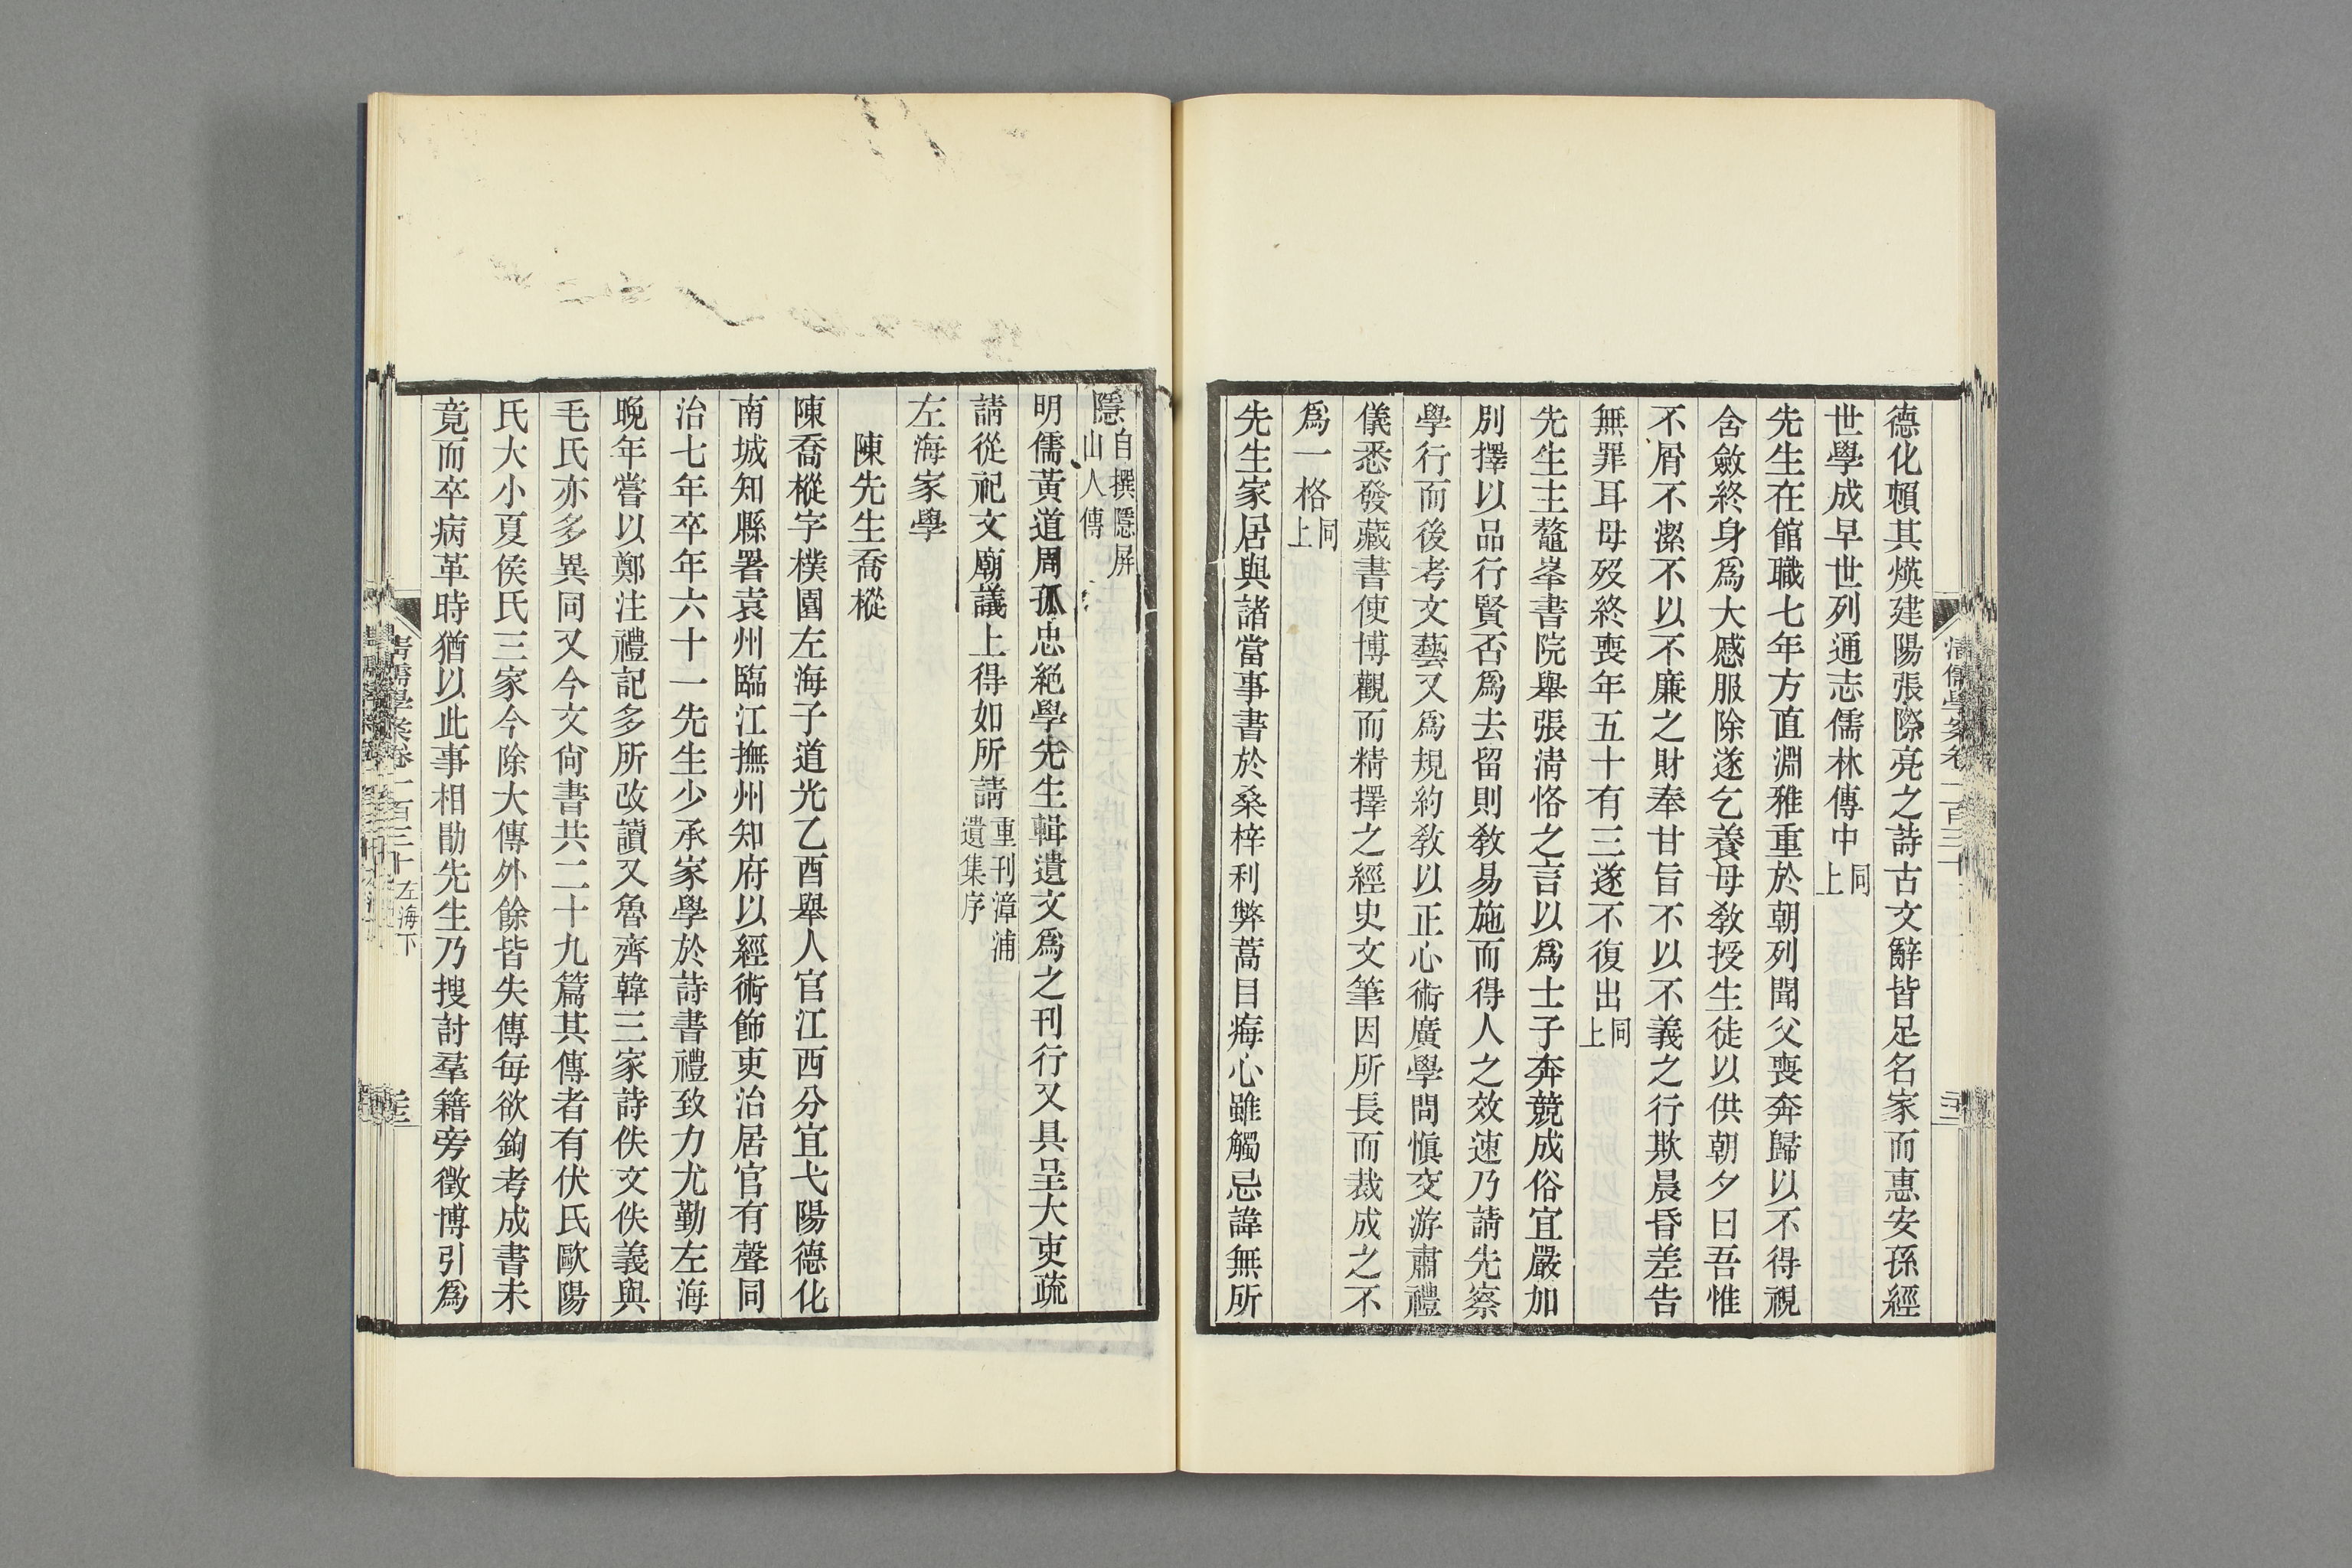 德化賴其煐建陽張際亮之詩古文辭皆足名家而惠安孫經
世學成早世列通志儒林傳中同上
先生在館職七年方直淵雅重於朝列聞父喪奔歸以不得視
含斂終身爲大慼服除遂乞養母敎授生徒以供朝夕曰吾惟
不屑不潔不以不廉之財奉甘旨不以不義之行欺晨昏差告
無罪耳母歿終喪年五十有三遂不復出同上
先生主鼇峯書院舉張淸恪之言以爲士子奔競成俗宜嚴加
別擇以品行賢否爲去留則敎易施而得人之效速乃請先察
學行而後考文藝又爲規約敎以正心術廣學問愼交游肅禮
儀悉發藏書使博觀而精擇之經史文筆因所長而裁成之不
爲一格同上
先生家居與諸當事書於桑梓利弊蒿目痗心雖觸忌諱無所
隱自撰隱屛山人傳
明儒黃道周孤忠絕學先生輯遺文爲之刊行又具呈大吏疏
請從祀文廟議上得如所請重刊漳浦遺集序
左海家學
陳先生喬樅
陳喬樅字樸園左海子道光乙酉舉人官江西分宜弋陽德化
南城知縣署袁州臨江撫州知府以經術飾吏治居官有聲同
治七年卒年六十一先生少承家學於詩書禮致力尤勤左海
晚年嘗以鄭注禮記多所改讀又魯齊韓三家詩佚文佚義與
毛氏亦多異同又今文尙書共二十九篇其傳者有伏氏歐陽
氏大小夏侯氏三家今除大傳外餘皆失傳每欲鉤考成書未
竟而卒病革時猶以此事相勖先生乃搜討羣籍旁徵博引爲
淸儒學案卷一百三十 左海下